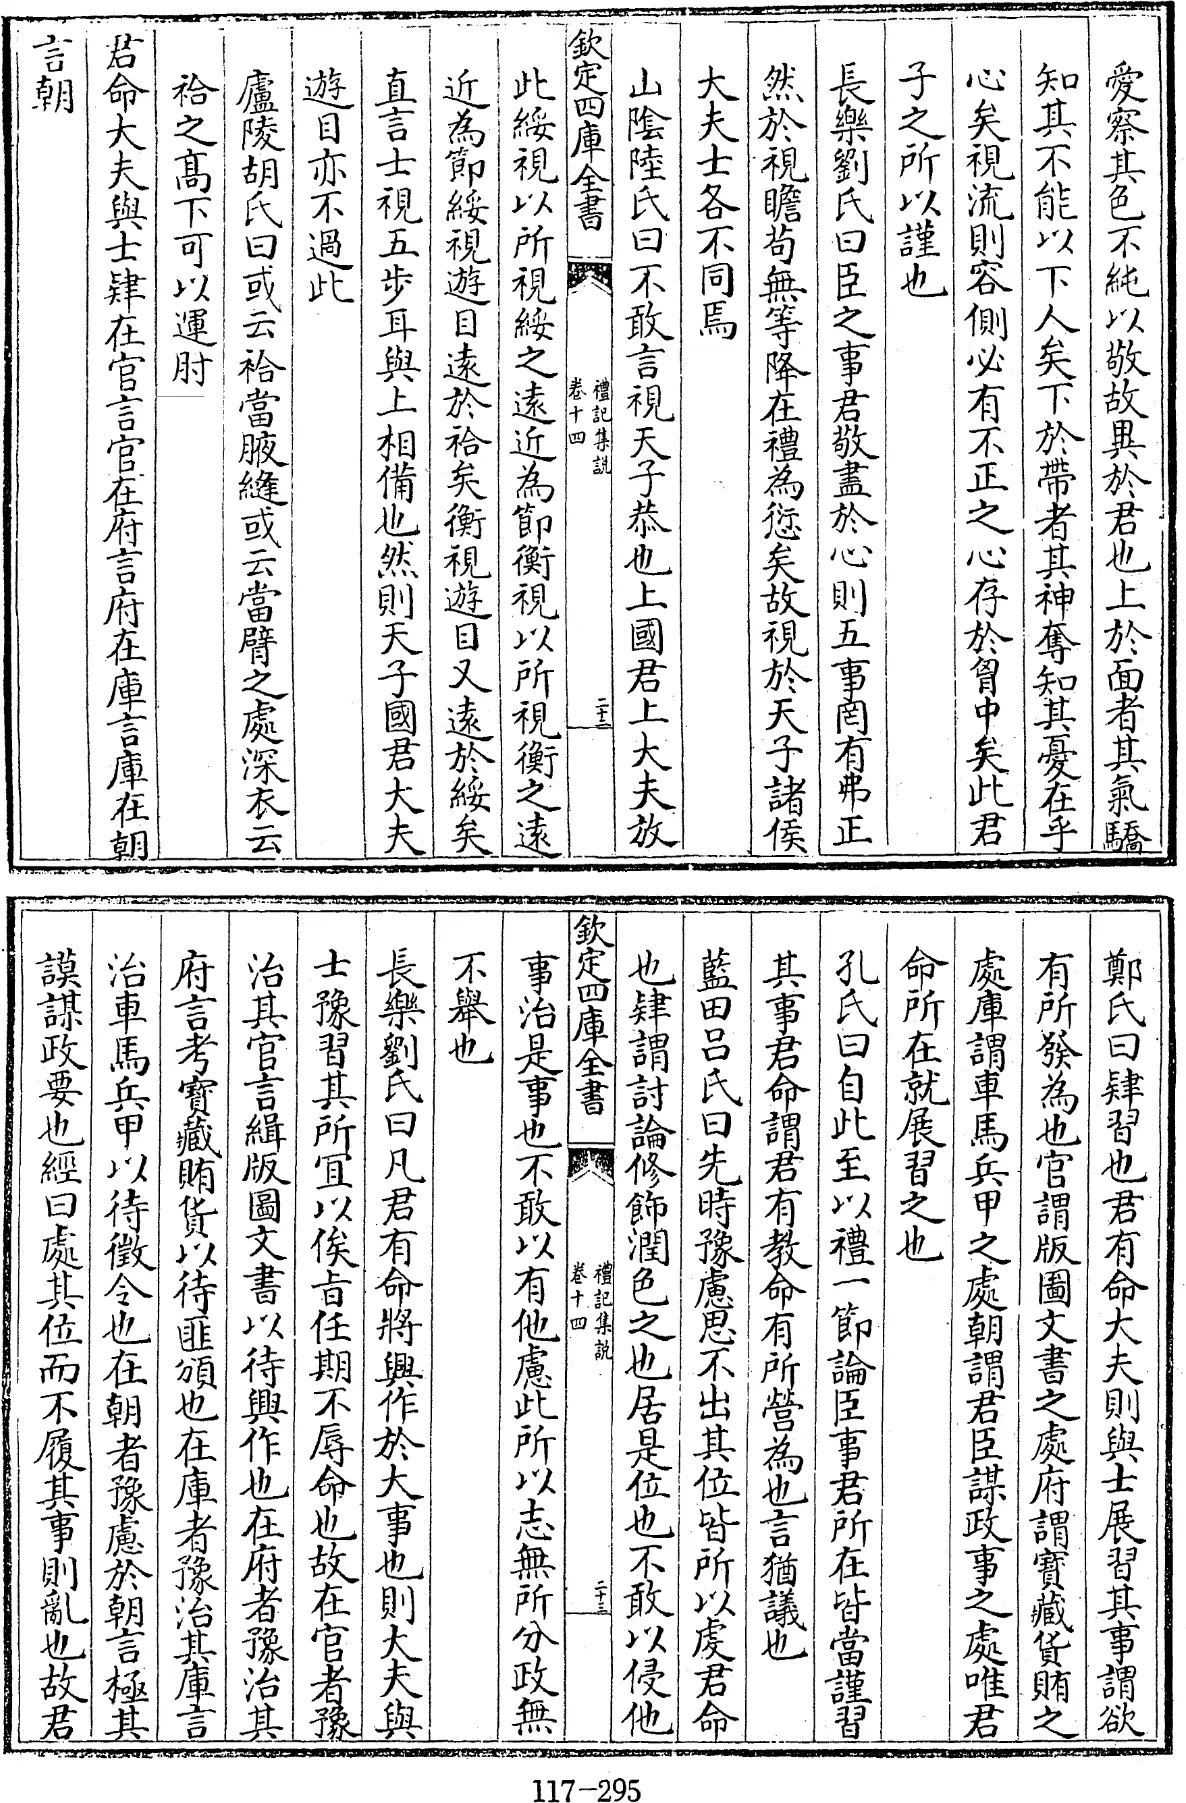 愛察其色不純以敬故異於君也上於面者其氣驕
知其不能以下人矣下於帶者其神奪知其憂在乎
心矣視流則容側必有不正之心存於胷中矣此君
子之所以謹也
長樂劉氏曰臣之事君敬盡於心則五事罔有弗正
然於視瞻茍無等降在禮為愆矣故視於天子諸侯
大夫士各不同焉
山隂陸氏曰不敢言視天子恭也上國君上大夫放
欽定四庫全書
禮記集説
卷十四
二十二
此綏視以所視綏之遠近為節衡視以所視衡之遠
近為節綏視遊目遠於袷矣衡視遊目又遠於綏矣
直言士視五步耳與上相備也然則天子國君大夫
遊目亦不過此
廬陵胡氏曰或云袷當腋縫或云當臂之處深衣云
袷之髙下可以運肘
君命大夫與士肄在官言官在府言府在庫言庫在朝
言朝
鄭氏曰肄習也君有命大夫則與士展習其事謂欲
有所發為也官謂版圖文書之處府謂寳藏貨賄之
處庫謂車馬兵甲之處朝謂君臣謀政事之處唯君
命所在就展習之也
孔氏曰自此至以禮一節論臣事君所在皆當謹習
其事君命謂君有教命有所營為也言猶議也
藍田吕氏曰先時豫慮思不出其位皆所以虔君命
也肄謂討論修飾潤色之也居是位也不敢以侵他
欽定四庫全書
禮記集説
卷十四
二十三
事治是事也不敢以有他慮此所以志無所分政無
不舉也
長樂劉氏曰凡君有命將興作於大事也則大夫與
士豫習其所宜以俟㫖任期不辱命也故在官者豫
治其官言緝版圖文書以待興作也在府者豫治其
府言考寳藏賄貨以待匪頒也在庫者豫治其庫言
治車馬兵甲以待徵令也在朝者豫慮於朝言極其
謨謀政要也經曰處其位而不履其事則亂也故君
117-295